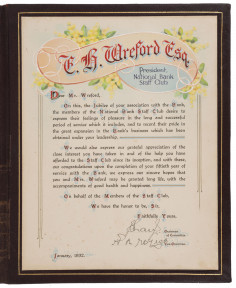 E. H. Wreford Esq.
President
National Bank
Staff Club
Dear Mr. Wreford,
On this, the Jubilee of your association with the Bank,
the members of the National Bank Staff Club desire to
express their feelings of pleasure in the long and successful
period of service which it includes, and to record their pride in
the great expansion in the Bank's business which has been
obtained under your leadership.
We would also express our grateful appreciation of the
close interest you have taken in and of the help you have
afforded to the Staff Club since its inception, and with these,
our congratulations upon the completion of your fiftieth year of
service with the Bank, we express our sincere hopes that
you and Mrs. Wreford may be granted long life, with the
accompaniments of good health and happiness.
On behalf of the Members of the Staff Club,
We have the honour to be, Sir,
Faithfully Yours,
January, 1932.